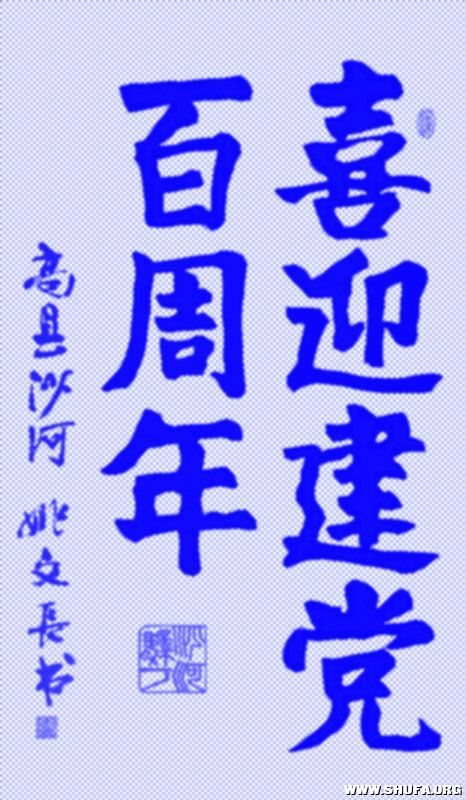 喜迎建党
百周年
高县沙河 姚文长书
WWW.SHUFA.ORG